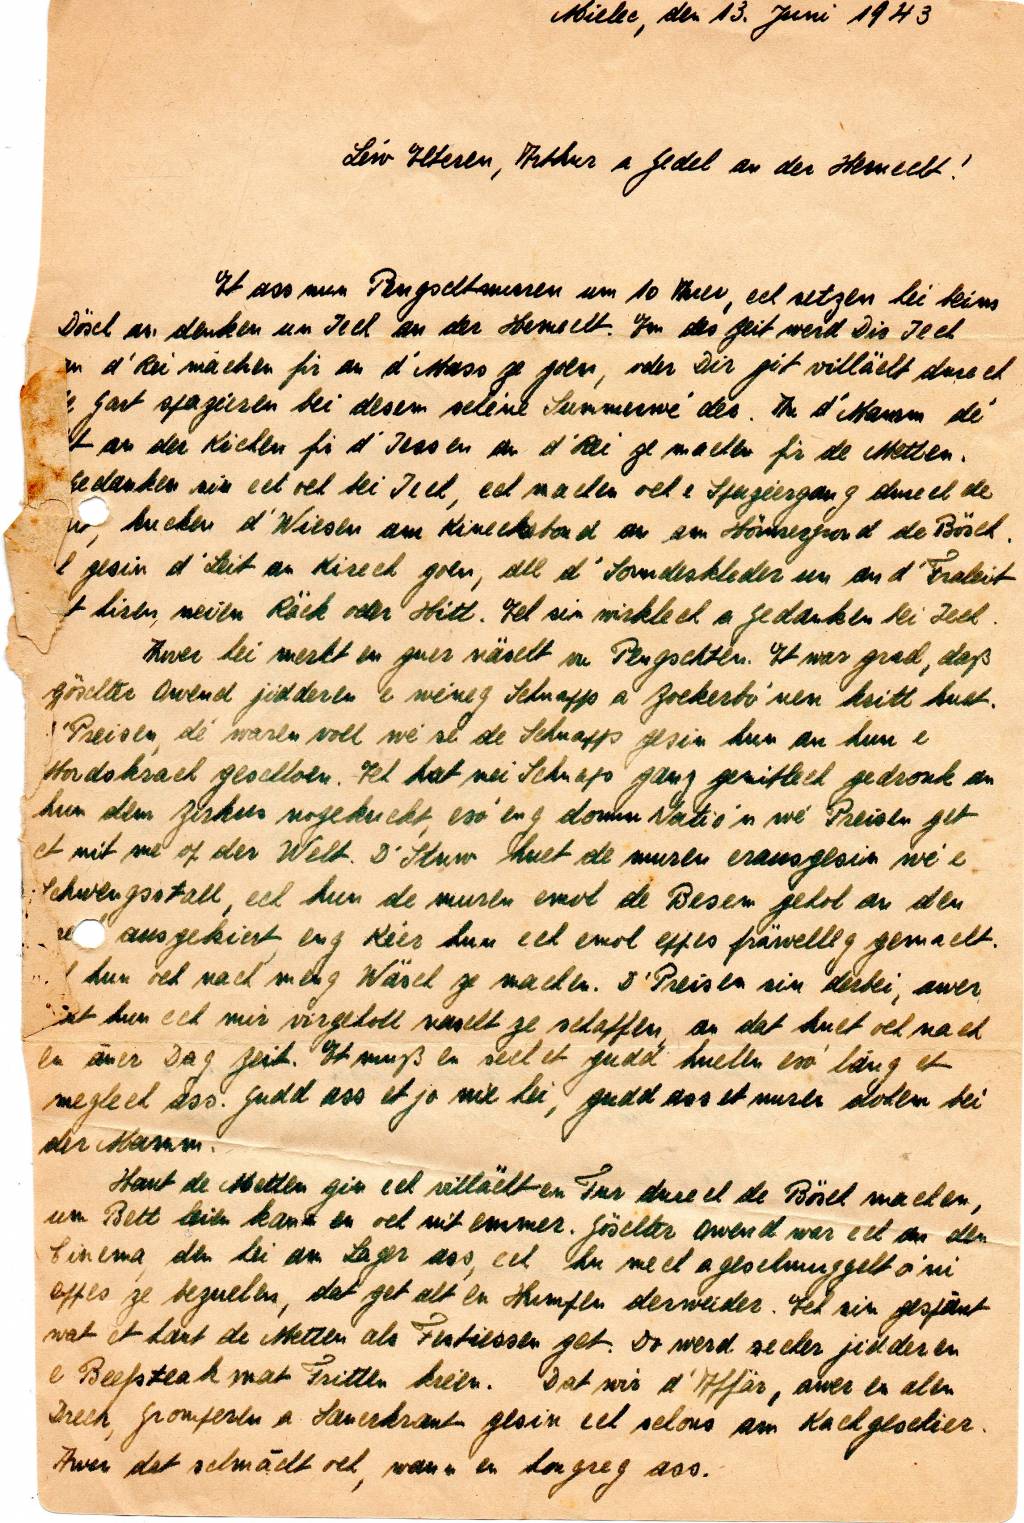 Mielec, den 13. Juni 1943
Léiw Elteren, Arthur a Gedel an der Hemecht!
Et ass nun Pengschtmueren um 10 Auer, ech setzen hei beim
Dösch an denken un Iech an der Hemecht. Em dés Zeit werd Dir Iech
an d'Rei máchen fir an d'Mass ze goen, oder Dir git villäicht durech
Gart spazéieren bei desem schéine Summerwé'der. An d'Mamm dé'
an der Kichen fir d'Iessen an d'Rei ze machen fir de Metten.
Gedanken sin ech och bei Iech, ech machen och e Spaziergang durech de
kucken d'Wiesen am an am de Bösch.
gesin d'Leit an Kirech goen, all d'Sonndeskleder un an d'Fraleit
hiren neien Räck oder Hitt. Ech sin wirklech a Gedanken bei Iech.
Awer hei merkt en guer näscht vu Pengschten. Et war grad, daß
göschter Owend jidderen e wéineg Schnapps a Zockerbo'nen kritt huet.
D'Preisen, dé' waren voll wé' se de Schnapps gesin hun an hun e
Mordskrach geschloen. Ech hat mei Schnaps ganz gemitlech gedronk an
hun dem Zirkus nogekuckt, eso' eng domm Natio'n wé' Preisen get
et nit me op der Welt. D'Stuw huet de muren erausgesin wé' e
Schwengsstall, ech hun de muren emol de Besem geholl an den
ausgekiert, eng Kéier hun ech emol eppes fräwelleg gemacht.
hun och nach meng Wäsch ze machen. D'Preisen sin derbei, awer
hun ech mir virgeholl näscht ze schaffen, an dat huet och nach
en aner Dag Zeit. Et muß en sech et gudd huelen eso' lang et
méglech ass. Gudd ass et jo nie hei, gudd ass et nuren dohem bei
der Mamm.
Haut de Metten gin ech villäicht en Tur durech de Bösch machen,
um Bett leien kann en och nit emmer. Göschter Owend war ech an den
Cinema, den hei am Lager ass, ech hu mech ageschmuggelt o'ni
eppes ze bezuelen, dat get alt en Humpen derweider. Ech sin gespànt
wat et haut de Metten als Festiessen get. Do werd secher jidderen
e Beefsteak mat Fritten kréien. Dat wir d'Affär, awer en alen
Dreck, Gromperen a Sauerkraut gesin ech schons am Kachgeschier.
Awer dat schmácht och, wann en hongreg ass.